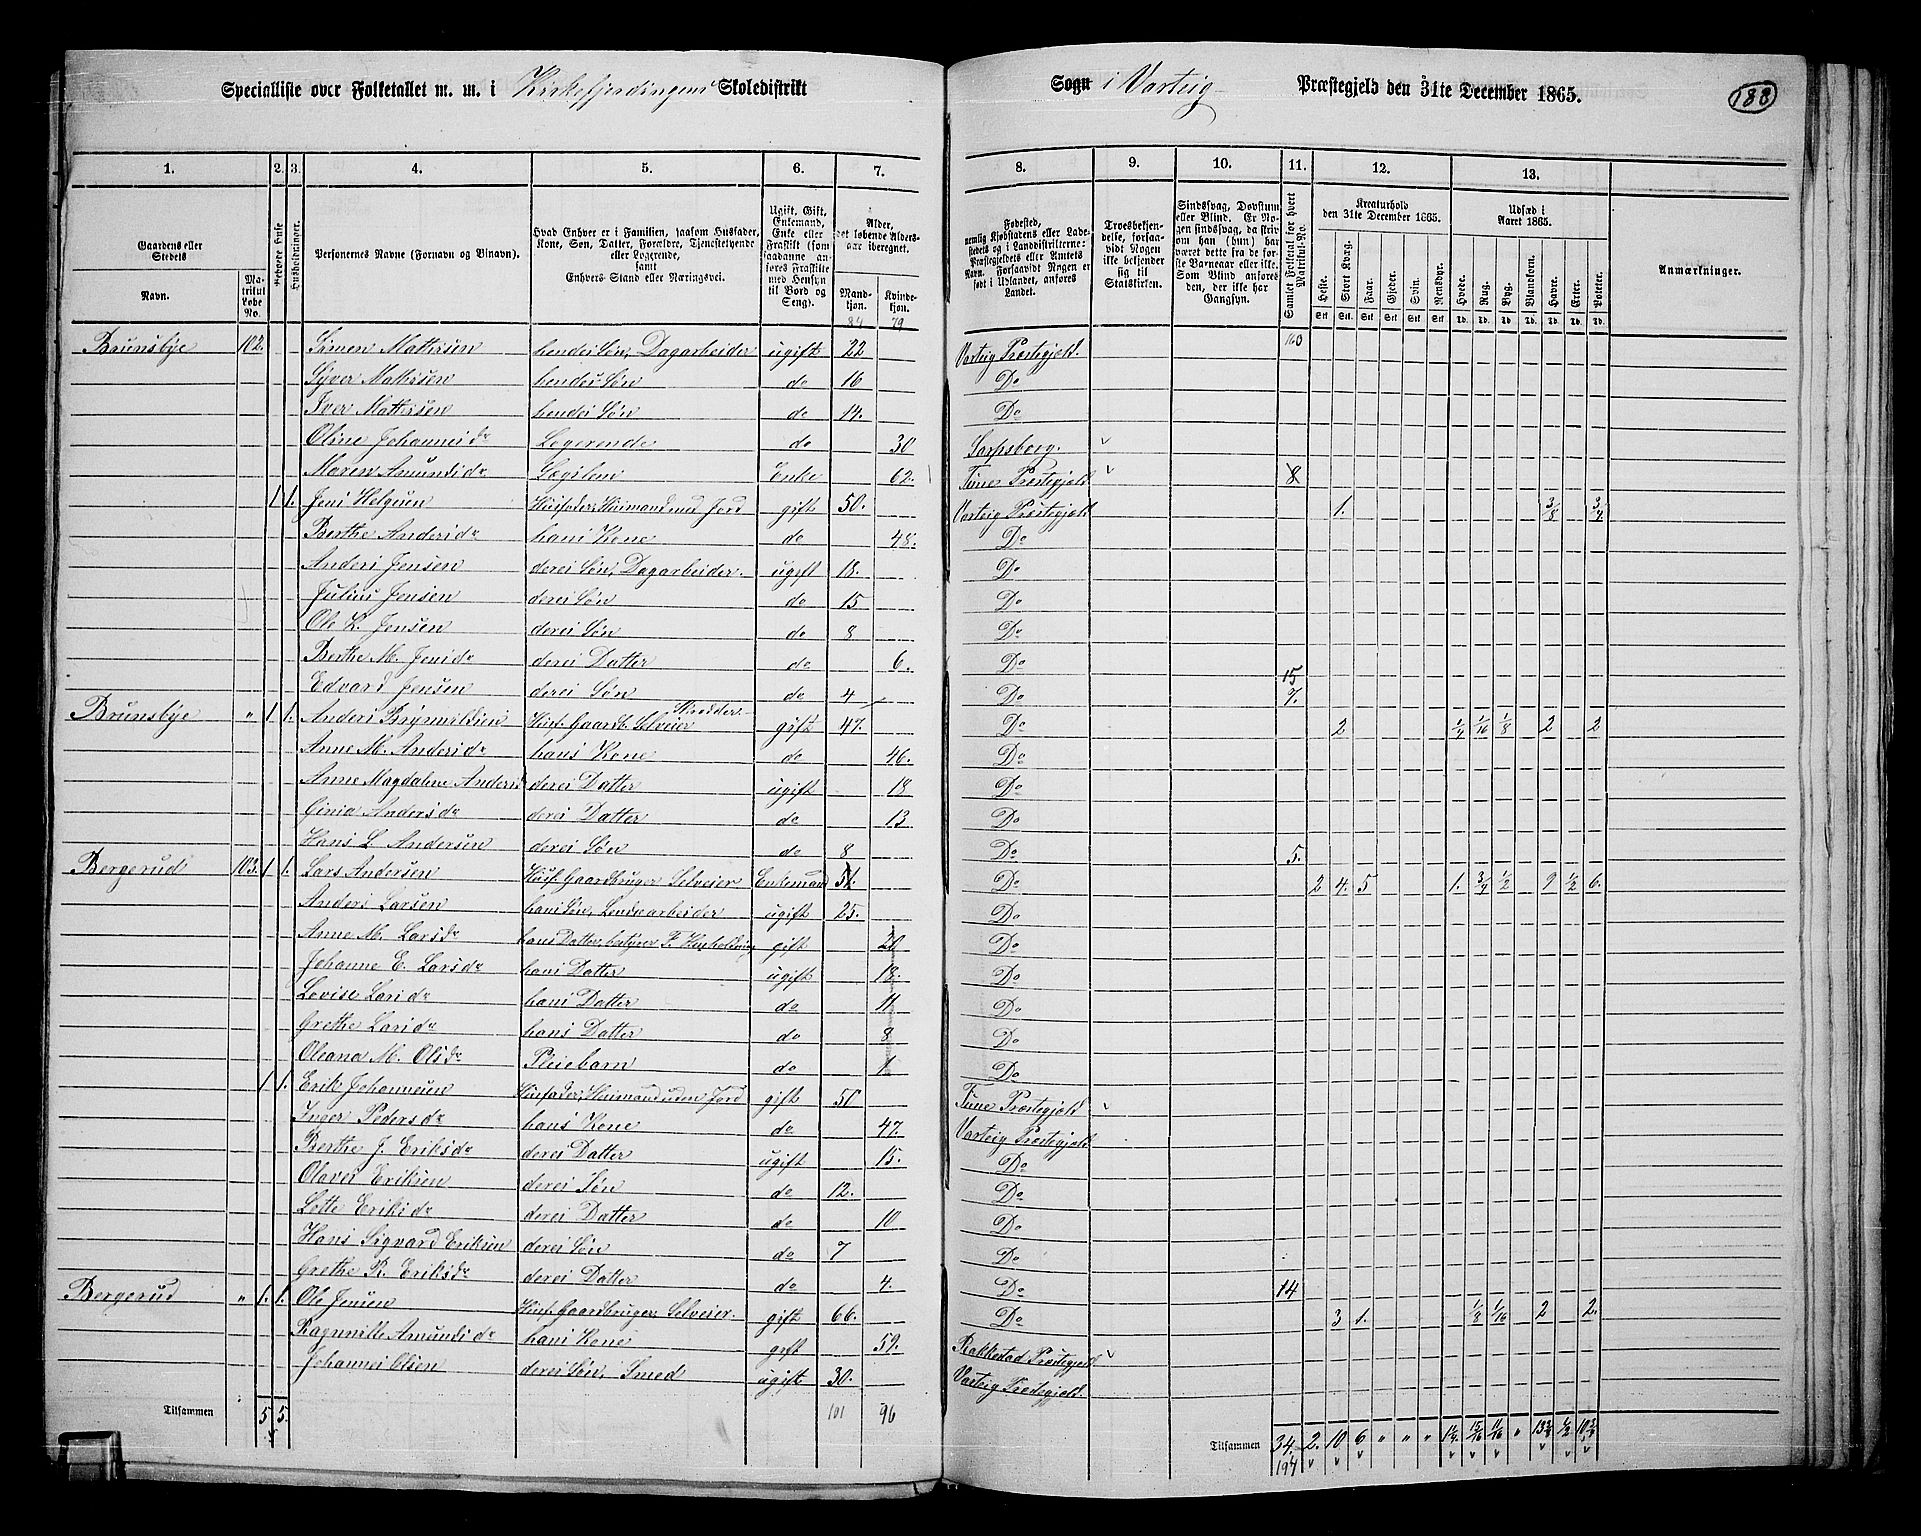 Specialliste over Folketallet m. m. i Kirkefjerdingens Skoledistrikt
Sogn i Varteig Præstegjeld den 31te December 1865.
188
1. 2. 3. 4. 5. 6. 7.
8. 9. 10. 11. 12. 13.
Gaardens eller Stedets
Navn.
Matrikul Løbe No.
Beboede Huse
Husholdninger.
Personernes Navne (Fornavn og Binavn).
Hvad Enhver er i Familien, saasom Husfader, Kone, Søn, Datter, Forældre, Tjenstetyende eller Logerende, samt Enhvers Stand eller Næringsvei.
Ugift, Gift, Enkemand, Enke eller Fraskilt (som saadanne anføres Fraskilte med Hensyn til Bord og Seng).
Alder, det løbende Aldersaar iberegnet.
Mandkjøn.
Kvindekjøn.
84 79
Fødested, nemlig Kjøbstadens eller Ladestedets og i Landdistrikterne: Præstegjeldets eller Amtets Navn. Forsaavidt Nogen er født i Udlandet, anføres Landet.
Troesbekjendelse, forsaavidt Nogen ikke bekjender sig til Statskirken.
Sindssvag, Døvstum eller Blind. Er Nogen sindssvag, da skrives om han (hun) har været dette fra de første Barneaar eller ikke. Som Blind anføres den, der ikke har Gangsyn.
Samlet Folketal for hvert Matrikul-No.
Kreaturhold den 31te December 1865.
Heste. Stort Kvæg. Faar. Gjeder. Svin. Rensdyr.
Udsæd i Aaret 1865.
Hvede. Rug. Byg. Blandkorn. Havre. Erter. Poteter.
Anmærkninger.
Brunsbye 102. Simen Mathisen hendes Søn, Dagarbeider ugift 22 Varteig Præstegjeld. 160
Syver Mathisen hendes Søn do 16 Do
Iver Mathisen hendes Søn do 14. Do
Oline Johannesdr Logerende do 30 Sarpsborg.
Maren Amundsdr Lægslem Enke 62. Tune Præstegjeld 8
1 1. Jens Helgesen Husfader, Husmand med Jord gift 50. Varteig Præstegjeld 1. 3/8 3/4
Berthe Andersdr hans Kone do 48. Do
Anders Jensen deres Søn, Dagarbeider. ugift 18. Do
Julius Jensen deres Søn do 15 Do
Ole L. Jensen deres Søn do 8 Do
Berthe M. Jensdr deres Datter do 6. Do
Edvard Jensen deres Søn do 4 Do 15 7.
Brunsbye " 1 1. Anders Brynildsen Husf. Gaardb. Selveier Skrædder. gift 47. Do 2 1/4 1/16 1/8 2 2
Anne M. Andersdr hans Kone do 46. Do
Anne Magdalene Andersd deres Datter ugift 18 Do
Ginia Andersdr deres Datter do 13 Do
Hans L. Andersen deres Søn do 8 Do 5.
Bergerud 103. 1 1. Lars Andersen Husf. Gaardbruger Selveier Enkemand 51. Do 2 4. 5 1. 3/4 1/2 9 1/2 6.
Anders Larsen hans Søn, Landarbeider ugift 25. Do
Anne M. Larsdr hans Datter, bestyrer F. Husholdning gift 20 Do
Johanne E. Larsdr hans Datter ugift 18. Do
Lovise Larsdr hans Datter do 11 Do
Grethe Larsdr hans Datter do 8 Do
Oleana M. Olsdr Pleiebarn do 1 Do
1 1. Erik Johannesen Husfader, Husmand uden Jord gift 50 Tune Præstegjeld
Inger Pedersdr hans Kone do 47. Varteig Præstegjeld.
Berthe J. Eriksdr deres Datter ugift 15. Do
Olaves Eriksen deres Søn do 12. Do
Lotte Eriksdr deres Datter do 10 Do
Hans Sigvard Eriksen deres Søn do 7 Do
Grethe R. Eriksdr deres Datter do 4. Do 14
Bergerud " 1. 1. Ole Jensen Husf. Gaardbruger Selveier. gift 66. Do 3 1. 1/8 1/16 2 2.
Ragnhille Amundsdr hans Kone gift 59. Rakkestad Præstegjeld
Johannes Olsen deres Søn, Smed ugift 30. Varteig Præstegjeld.
Tilsammen 5 5. 101 96
Tilsammen 34. 2. 10 6 " " " 1 1/4 15/16 11/16 " 13 3/8 1/2 10 3/4
194